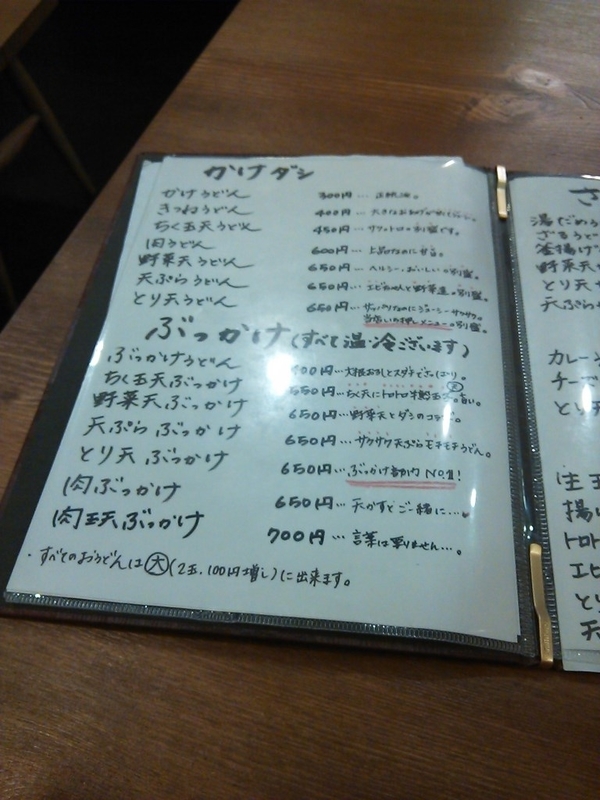 かけダシ
かけうどん 300円… 正統派。
きつねうどん 400円…
ちく玉天うどん 450円… 別盛です。
肉うどん 600円…
野菜天うどん 650円… ヘルシー、おいしい。別盛。
天ぷらうどん 650円… 野菜達。別盛。
とり天うどん 650円…
当店いち押しメニュー。別盛。
ぶっかけ(すべて温・冷ございます)
ぶっかけうどん 400円… 大根おろしとスダチでさっぱり。
ちく玉天ぶっかけ 550円… ちく天にトロトロ半熟玉天。旨い。
野菜天ぶっかけ 650円… 野菜天とダシのコラボ。
天ぷらぶっかけ 650円… サクサク天ぷらモチモチうどん。
とり天ぶっかけ 650円… ぶっかけ部門 NO.1!
肉ぶっかけ 650円… 天かすとご一緒に…。
肉玉天ぶっかけ 700円… 言葉は要りません…。
・すべてのおうどんは大(2玉、100円増し)に出来ます。
さ
湯だめう
ざるうど
釜揚げ
野菜天
とり天
天ぷら
カレー
チーズ
とり天
生玉
揚げ
トロ
エビ
とり
天